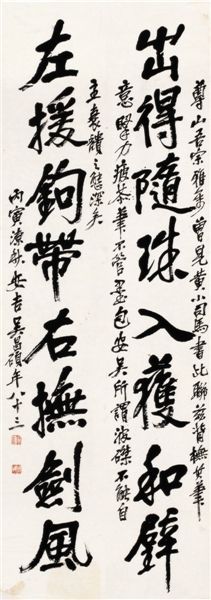 尊山吾宗雅屬曾見黃小司馬書此聯茲背橅其筆
出得隨珠入獲和璧
意腎力疲苶筆不管墨包安吳所謂波磔不能自
主衰穨之態深矣
左援鉤帶右撫劍風
丙寅潦秋安吉吳昌碩年八十三